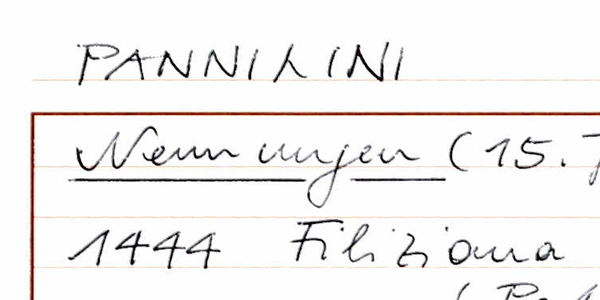 PANNILINI
Nennungen (15. J
1444 Filiziana